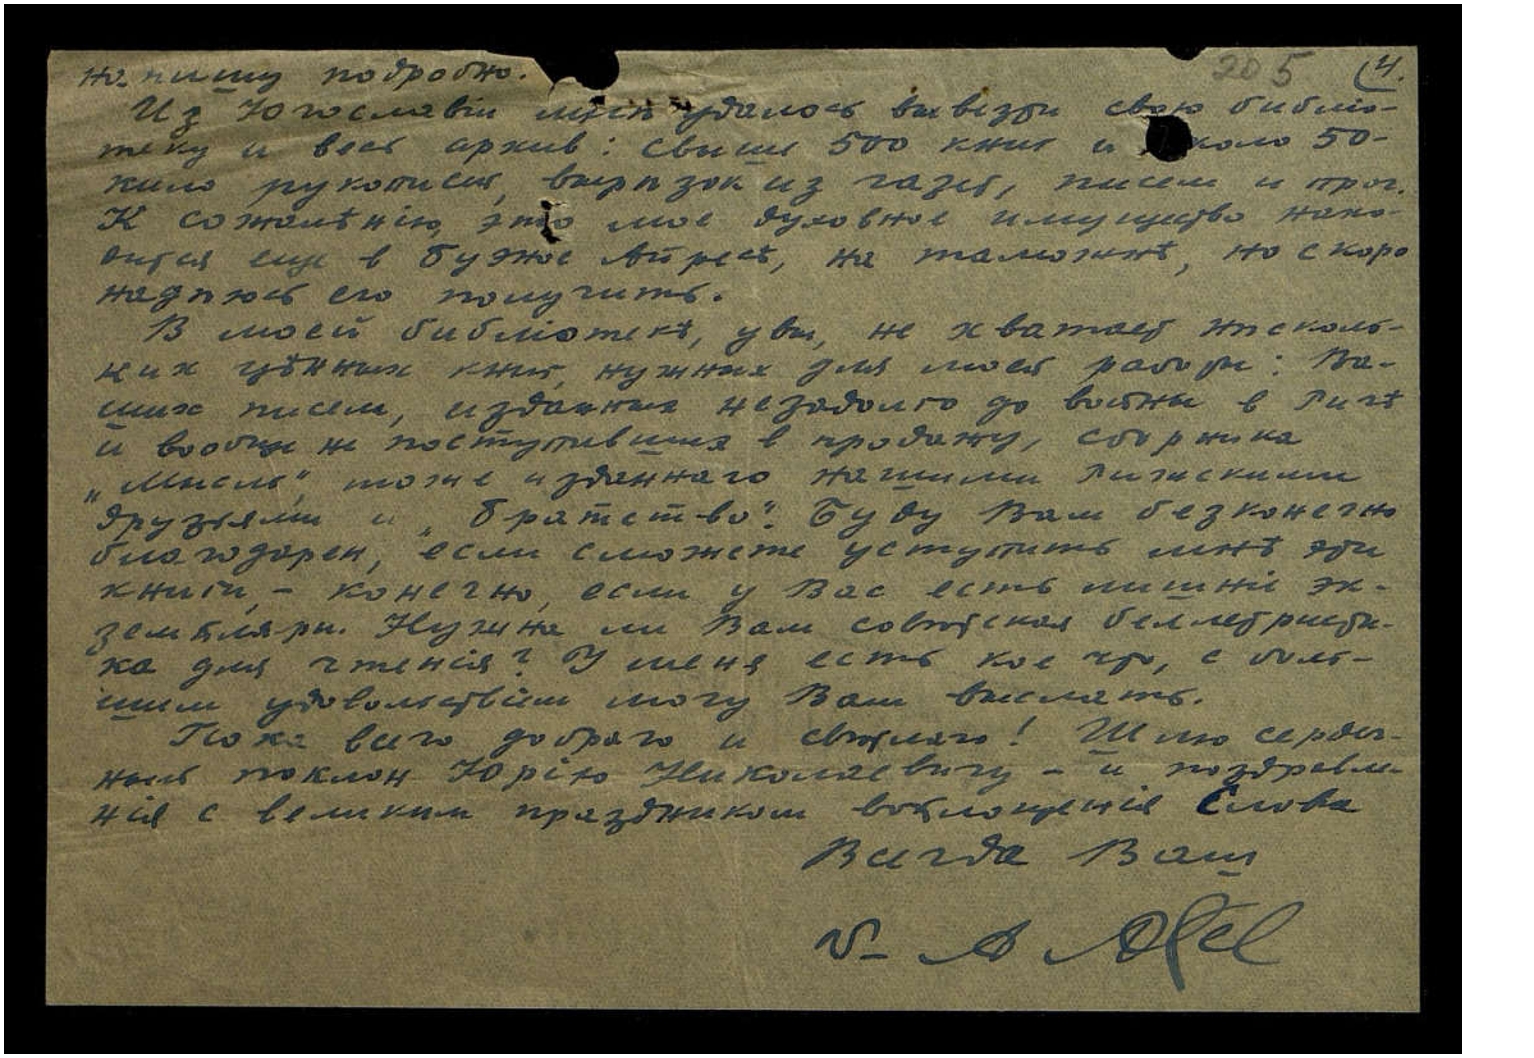 205 (4.
напишу подробно.
Из Югославіи мнѣ удалось вывезти свою библіо-
теку и весь архив: свыше 500 книг и около 50-
кило рукописей, вырѣзок из газет, писем и проч.
К сожалѣнію, это мое духовное имущество нахо-
дится еще в Буэнос Айресѣ, на таможнѣ, но скоро
надѣюсь его получить.
В моей библіотекѣ, увы, не хватает нѣсколь-
ких цѣнных книг, нужных для моей работы: Ва-
ших писем, изданных незадолго до войны в Ригѣ
и вообще не поступивших в продажу, сборника
„Мысль", тоже изданнаго нашими Рижскими
друзьями и „Братство". Буду Вам безконечно
благодарен, если сможете уступить мнѣ эти
книги, - конечно, если у Вас есть лишніе эк-
земпляры. Нужна ли Вам совѣтская беллетристи-
ка для чтенія? У меня есть кое что, с боль-
шим удовольствіем могу Вам выслать.
Пока всего добраго и свѣтлаго! Шлю сердеч-
ный поклон Юрію Николаевичу - и поздравле-
нія с великим праздником воплощенія Слова
Всегда Ваш